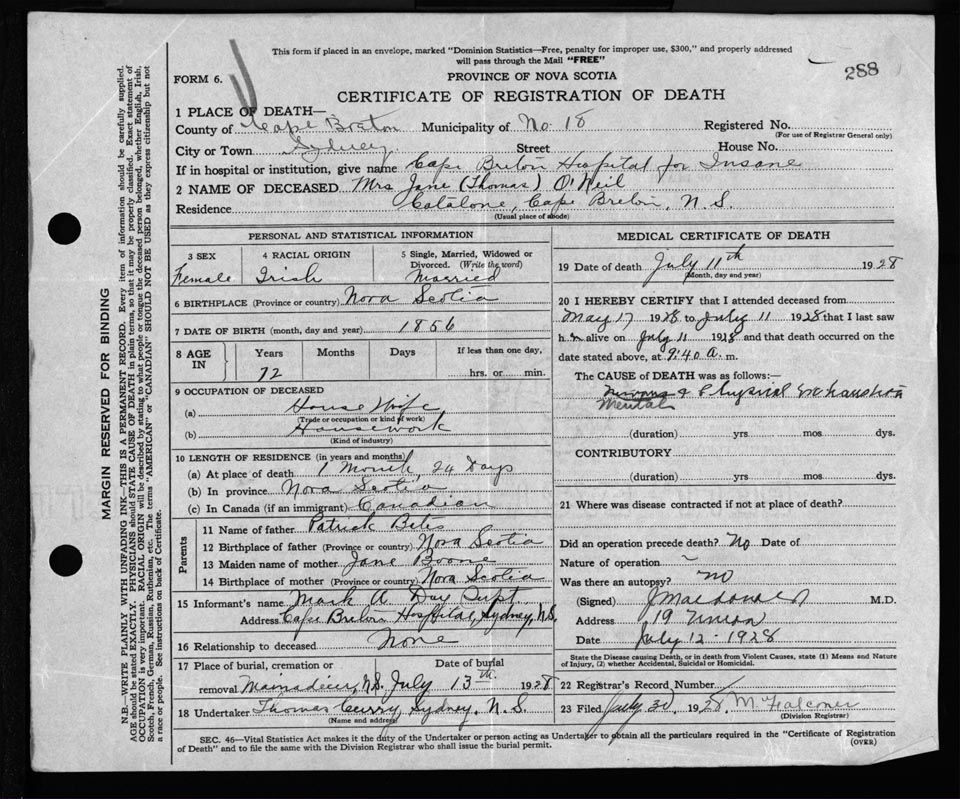 This form if placed in an envelope, marked "Dominion Statistics—Free, penalty for improper use, $300," and properly addressed
will pass through the Mail "FREE"
288
FORM 6.
PROVINCE OF NOVA SCOTIA
CERTIFICATE OF REGISTRATION OF DEATH
1 PLACE OF DEATH—
County of Cape Breton Municipality of No 18 Registered No.
(For use of Registrar General only)
City or Town Sydney Street House No.
If in hospital or institution, give name Cape Breton Hospital for Insane
2 NAME OF DECEASED Mrs Jane (Thomas) O'Neil
Residence Catalone, Cape Breton, N.S.
(Usual place of abode)
PERSONAL AND STATISTICAL INFORMATION
3 SEX 4 RACIAL ORIGIN 5 Single, Married, Widowed or
Divorced. (Write the word)
Female Irish Married
6 BIRTHPLACE (Province or country) Nova Scotia
7 DATE OF BIRTH (month, day and year) 1856
8 AGE IN Years Months Days If less than one day,
72 hrs. or min.
9 OCCUPATION OF DECEASED
(a) House Wife
(Trade or occupation or kind of work)
(b) Housework
(Kind of industry)
10 LENGTH OF RESIDENCE (in years and months)
(a) At place of death 1 Month, 24 Days
(b) In province Nova Scotia
(c) In Canada (if an immigrant) Canadian
Parents
11 Name of father Patrick Bates
12 Birthplace of father (Province or country) Nova Scotia
13 Maiden name of mother Jane Boone
14 Birthplace of mother (Province or country) Nova Scotia
15 Informant's name Mark A Day Supt.
Address Cape Breton Hospital, Sydney, N.S.
16 Relationship to deceased None
17 Place of burial, cremation or Date of burial
removal Mainadieu, N.S. July 13th 1928
18 Undertaker Thomas Curry, Sydney, N.S.
(Name and address)
MEDICAL CERTIFICATE OF DEATH
19 Date of death July 11th 1928
(Month, day and year)
20 I HEREBY CERTIFY that I attended deceased from
May 17 1928 to July 11 1928 that I last saw
h alive on July 11 1928 and that death occurred on the
date stated above, at 9:40 a. m.
The CAUSE of DEATH was as follows:—
& Physical Exhaustion
Mental
(duration) yrs mos dys.
CONTRIBUTORY
(duration) yrs mos dys.
21 Where was disease contracted if not at place of death?
Did an operation precede death? No Date of
Nature of operation
Was there an autopsy? no
(Signed) J Macdonald M.D.
Address 19 Union
Date July 12 - 1928
State the Disease causing Death, or in death from Violent Causes, state (1) Means and Nature
of Injury, (2) whether Accidental, Suicidal or Homicidal.
22 Registrar's Record Number
23 Filed July 30, 1928, McFalconer
(Division Registrar)
SEC. 46—Vital Statistics Act makes it the duty of the Undertaker or person acting as Undertaker to obtain all the particulars required in the "Certificate of Registration
of Death" and to file the same with the Division Registrar who shall issue the burial permit. (OVER)
MARGIN RESERVED FOR BINDING
N.B.—WRITE PLAINLY WITH UNFADING INK—THIS IS A PERMANENT RECORD. Every item of information should be carefully supplied.
AGE should be stated EXACTLY. PHYSICIANS should STATE CAUSE OF DEATH in plain terms, so that it may be properly classified. Exact statement of
OCCUPATION is very important. RACIAL ORIGIN will be described by stating to what people or tongue the deceased person belonged, whether English, Irish,
Scotch, French, German, Russian, Ruthenian, etc. The terms "AMERICAN" or "CANADIAN" SHOULD NOT BE USED as they express citizenship but not
a race or people. See instructions on back of Certificate.